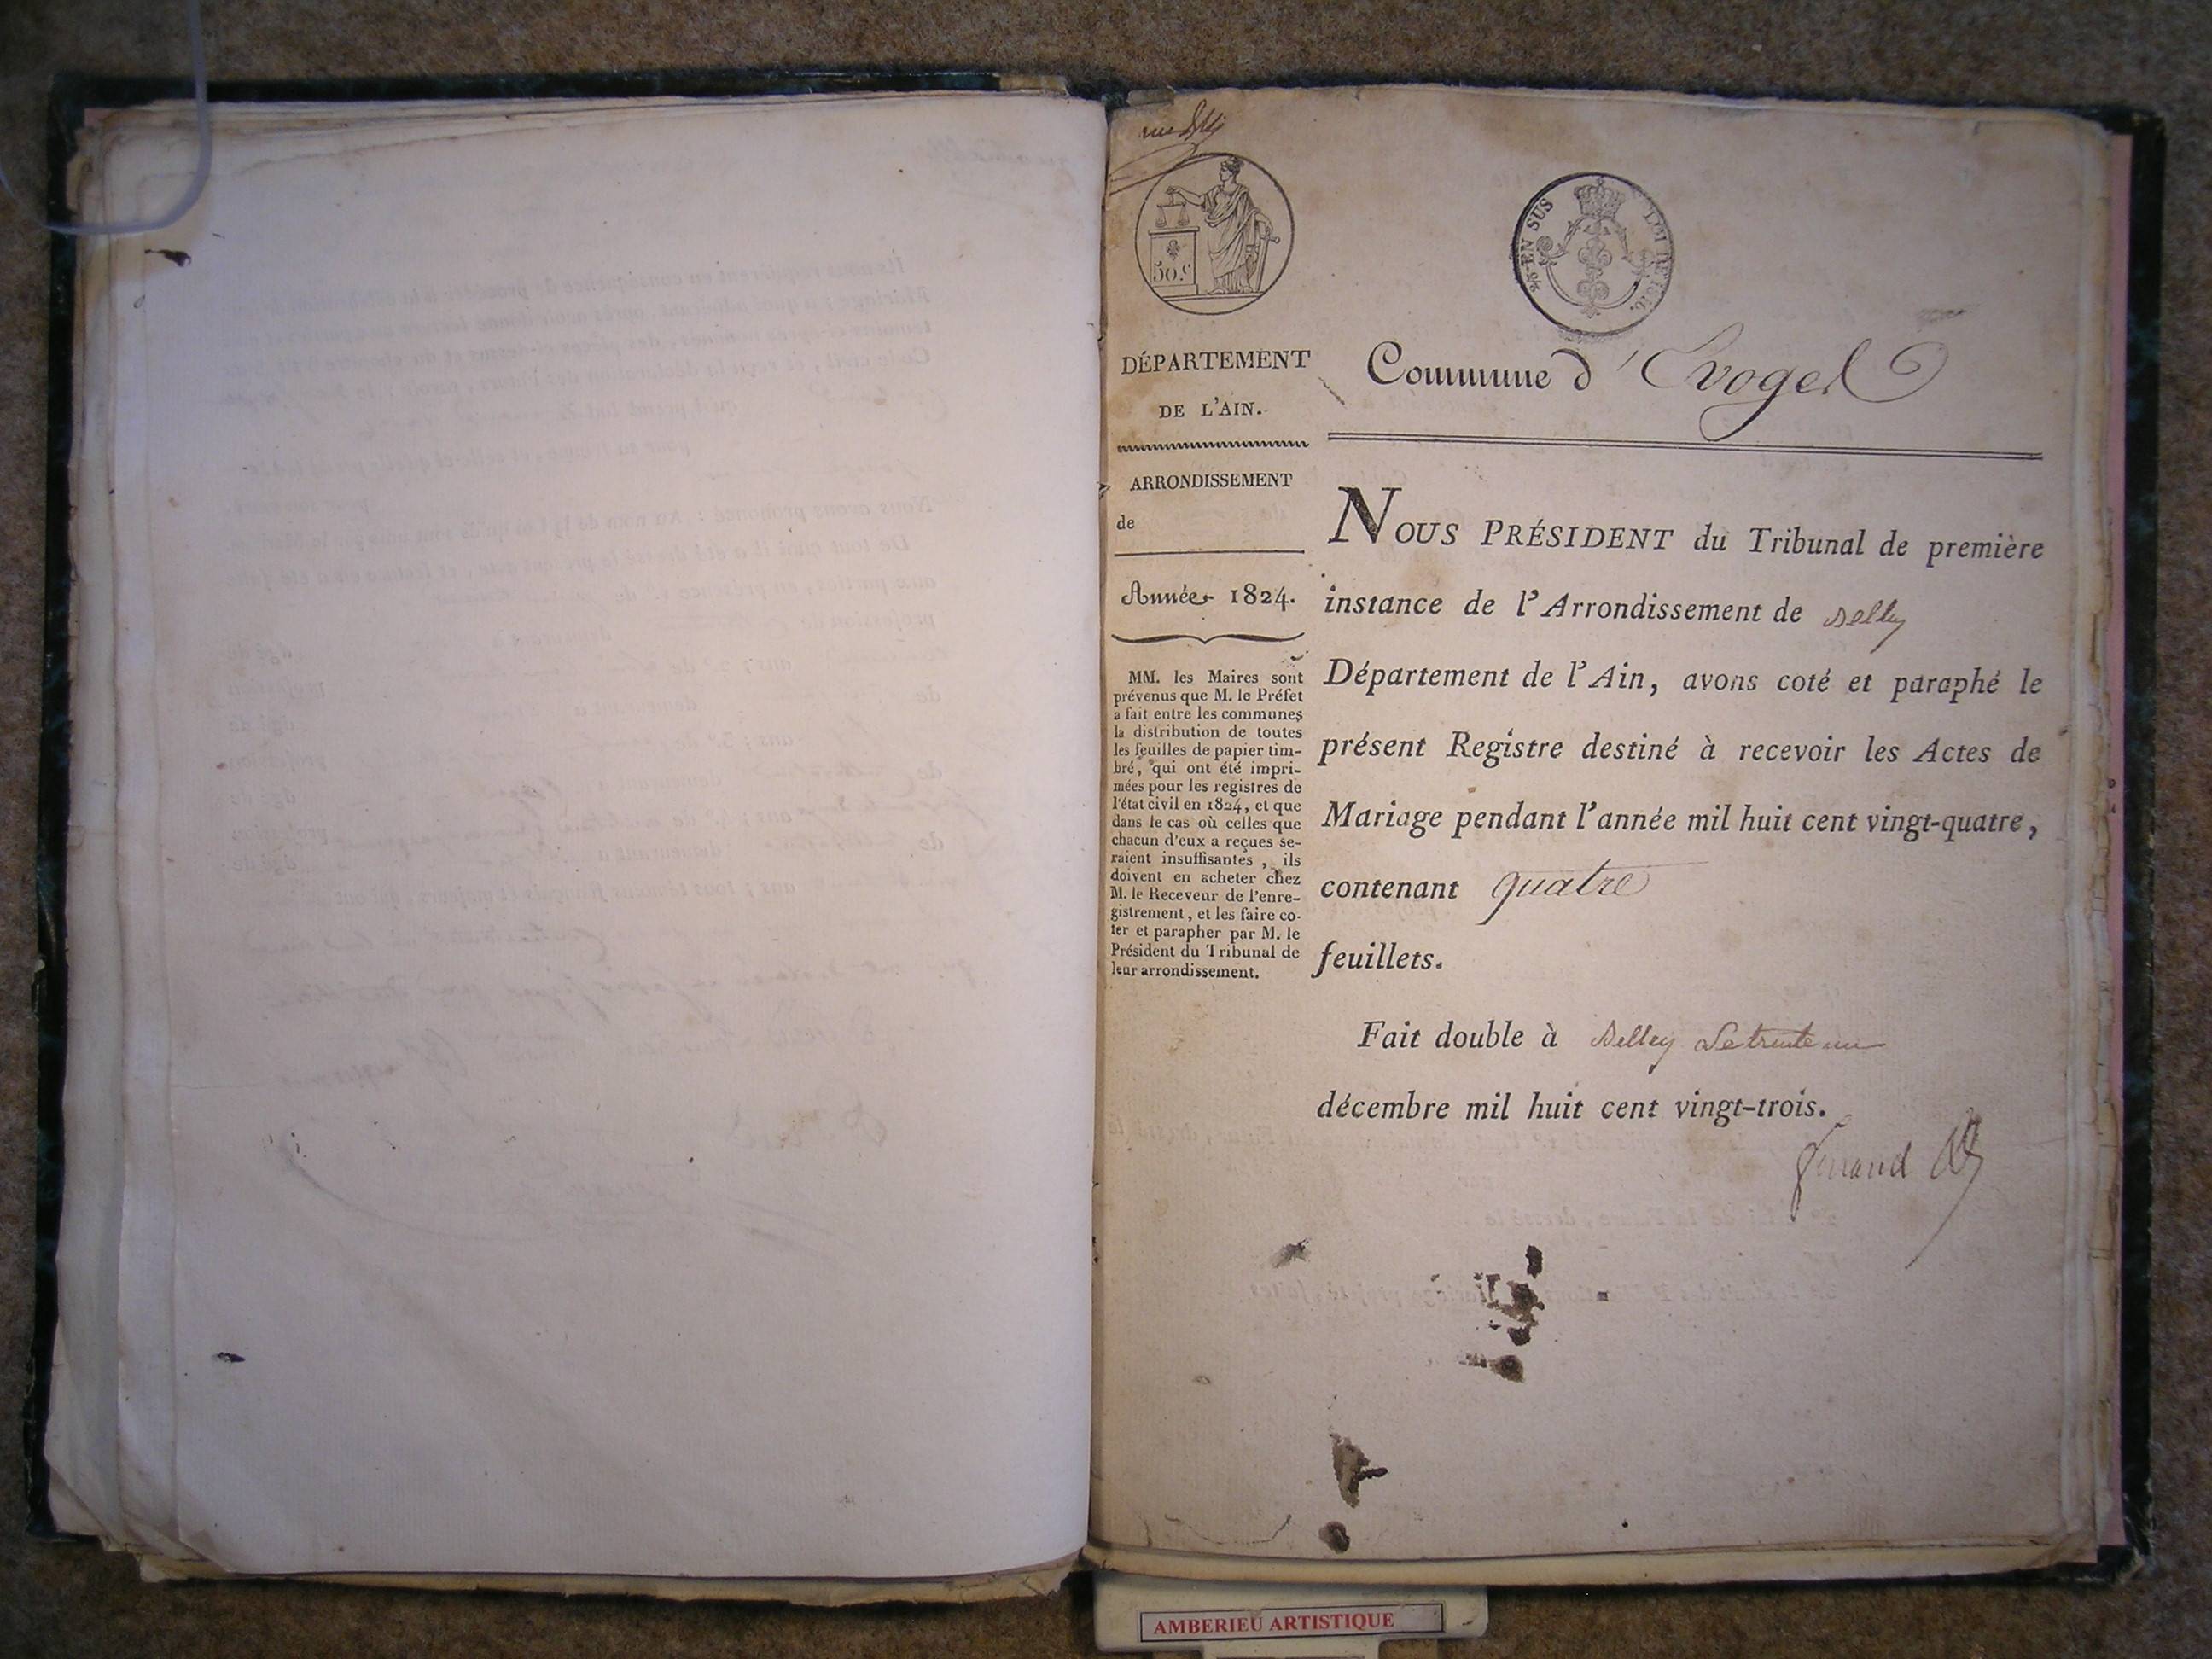 50.c
EN SUS
LOI DE 1816.
DÉPARTEMENT
DE L'AIN.
ARRONDISSEMENT
de
Année 1824.
MM. les Maires sont
prévenus que M. le Préfet
a fait entre les communes
la distribution de toutes
les feuilles de papier tim-
bré, qui ont été impri-
mées pour les registres de
l'état civil en 1824, et que
dans le cas où celles que
chacun d'eux a reçues se-
raient insuffisantes, ils
doivent en acheter chez
M. le Receveur de l'enre-
gistrement, et les faire co-
ter et parapher par M. le
Président du Tribunal de
leur arrondissement.
Commune d' Evoges
NOUS PRÉSIDENT du Tribunal de première
instance de l'Arrondissement de Belley
Département de l'Ain, avons coté et paraphé le
présent Registre destiné à recevoir les Actes de
Mariage pendant l'année mil huit cent vingt-quatre,
contenant quatre
feuillets.
Fait double à Belley le trente un
décembre mil huit cent vingt-trois.
AMBERIEU ARTISTIQUE